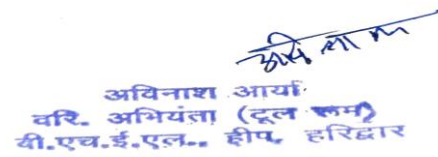 अविनाश आर्या
वरि. अभियंता (टूल रूम)
बी.एच.ई.एल., हीप, हरिद्वार